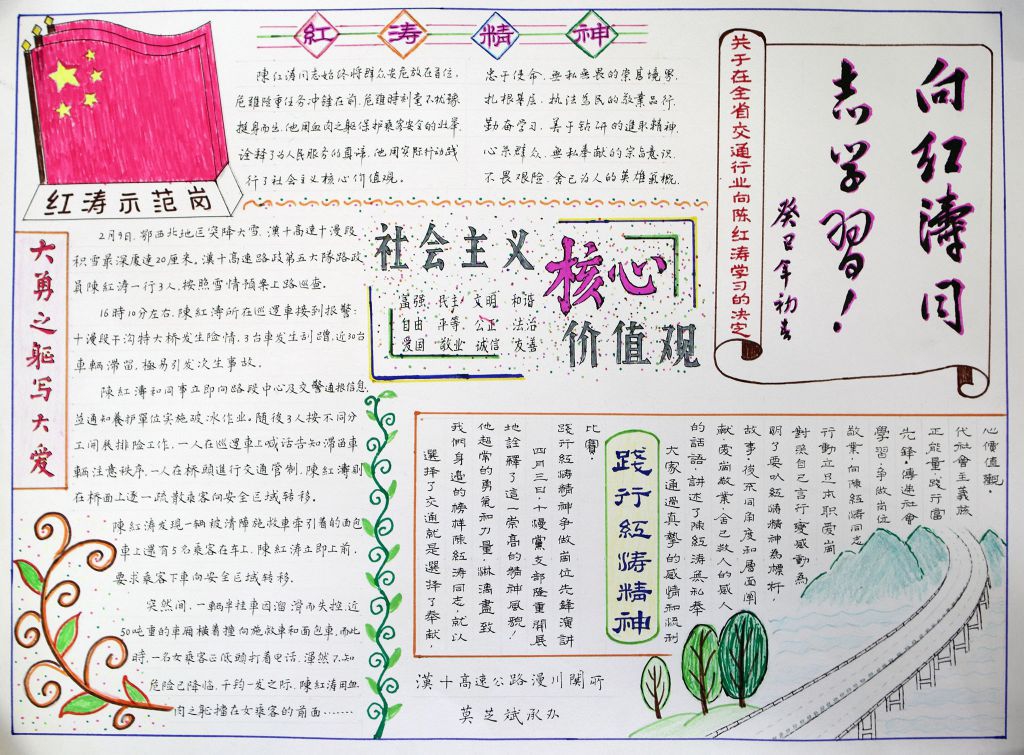 紅涛精神
陳红涛同志始终将群众安危放在首位,
危难险重任务冲锋在前,危难時刻毫不犹豫
挺身而出,他用血肉之躯保护乘客安全的壮举,
诠释了为人民服务的真谛,他用实际行动践
行了社会主义核心价值观。
忠于使命、無私無畏的崇髙境界,
扎根基层、执法為民的敬業品行,
勤奋学习、善于钻研的進取精神,
心系群众、無私奉献的宗旨意识,
不畏艰险、舍己为人的英雄氣概。
关于在全省交通行业向陈红涛学习的决定
向红濤同
志学習!
癸巳年初春
红涛示范岗
大勇之躯写大爱
2月9日,鄂西北地区突降大雪,漢十高速十漫段
积雪最深處達20厘米,漢十高速路政第五大隊路政
員陳紅涛一行3人,按照雪情預案上路巡查。
16時10分左右,陳紅濤所在巡邏車接到报警:
十漫段干沟特大桥发生险情,3台車发生刮蹭,近30台
車辆滞留,極易引发次生事故。
陳紅濤和同事立即向路段中心及交警通报信息,
並通知養护單位实施破冰作业。随後3人按不同分
工開展排险工作,一人在巡邏車上喊话告知滞留車
輛注意秩序,一人在桥頭進行交通管制,陳紅濤則
在桥面上逐一疏散乘客向安全区域转移。
陳紅涛发现一辆被清障施救車牵引着的面包
車上還有5名乘客在车上,陳紅涛立即上前,
要求乘客下車向安全区域转移。
突然间,一辆半挂車因溜滑而失控,近
50吨重的車厢横着撞向施救車和面包車,而此
時,一名女乘客正低頭打着电话,渾然不知
危险已降临,千钧一发之际,陳紅涛用血
肉之軀擋在女乘客的前面……
社会主义
核心
价值观
富强 民主 文明 和谐
自由 平等 公正 法治
爱国 敬业 诚信 友善
心價值觀。
代社會主義核
正能量,踐行當
先鋒,傳遞社會
學習,争做崗位
敬業,向陳紅涛同志
行動立足本职爱崗
對照自己言行,變感動為
明了要以紅涛精神為標杆,
故事,從不同角度和層面闡
献爱崗敬業、舍己救人的感人
的話語,讲述了陳紅涛無私奉
大家通過真摯的感情和流利
踐行紅涛精神
比賽。
踐行紅涛精神争做崗位先鋒演讲
四月三日,十漫黨支部隆重開展
地詮釋了這一崇高的精神風貌!
他超常的勇氣和力量淋漓盡致
我們身邊的榜样陳紅涛同志,就以
選擇了交通就是選擇了奉献,
漢十高速公路漫川関所
莫芝斌承办